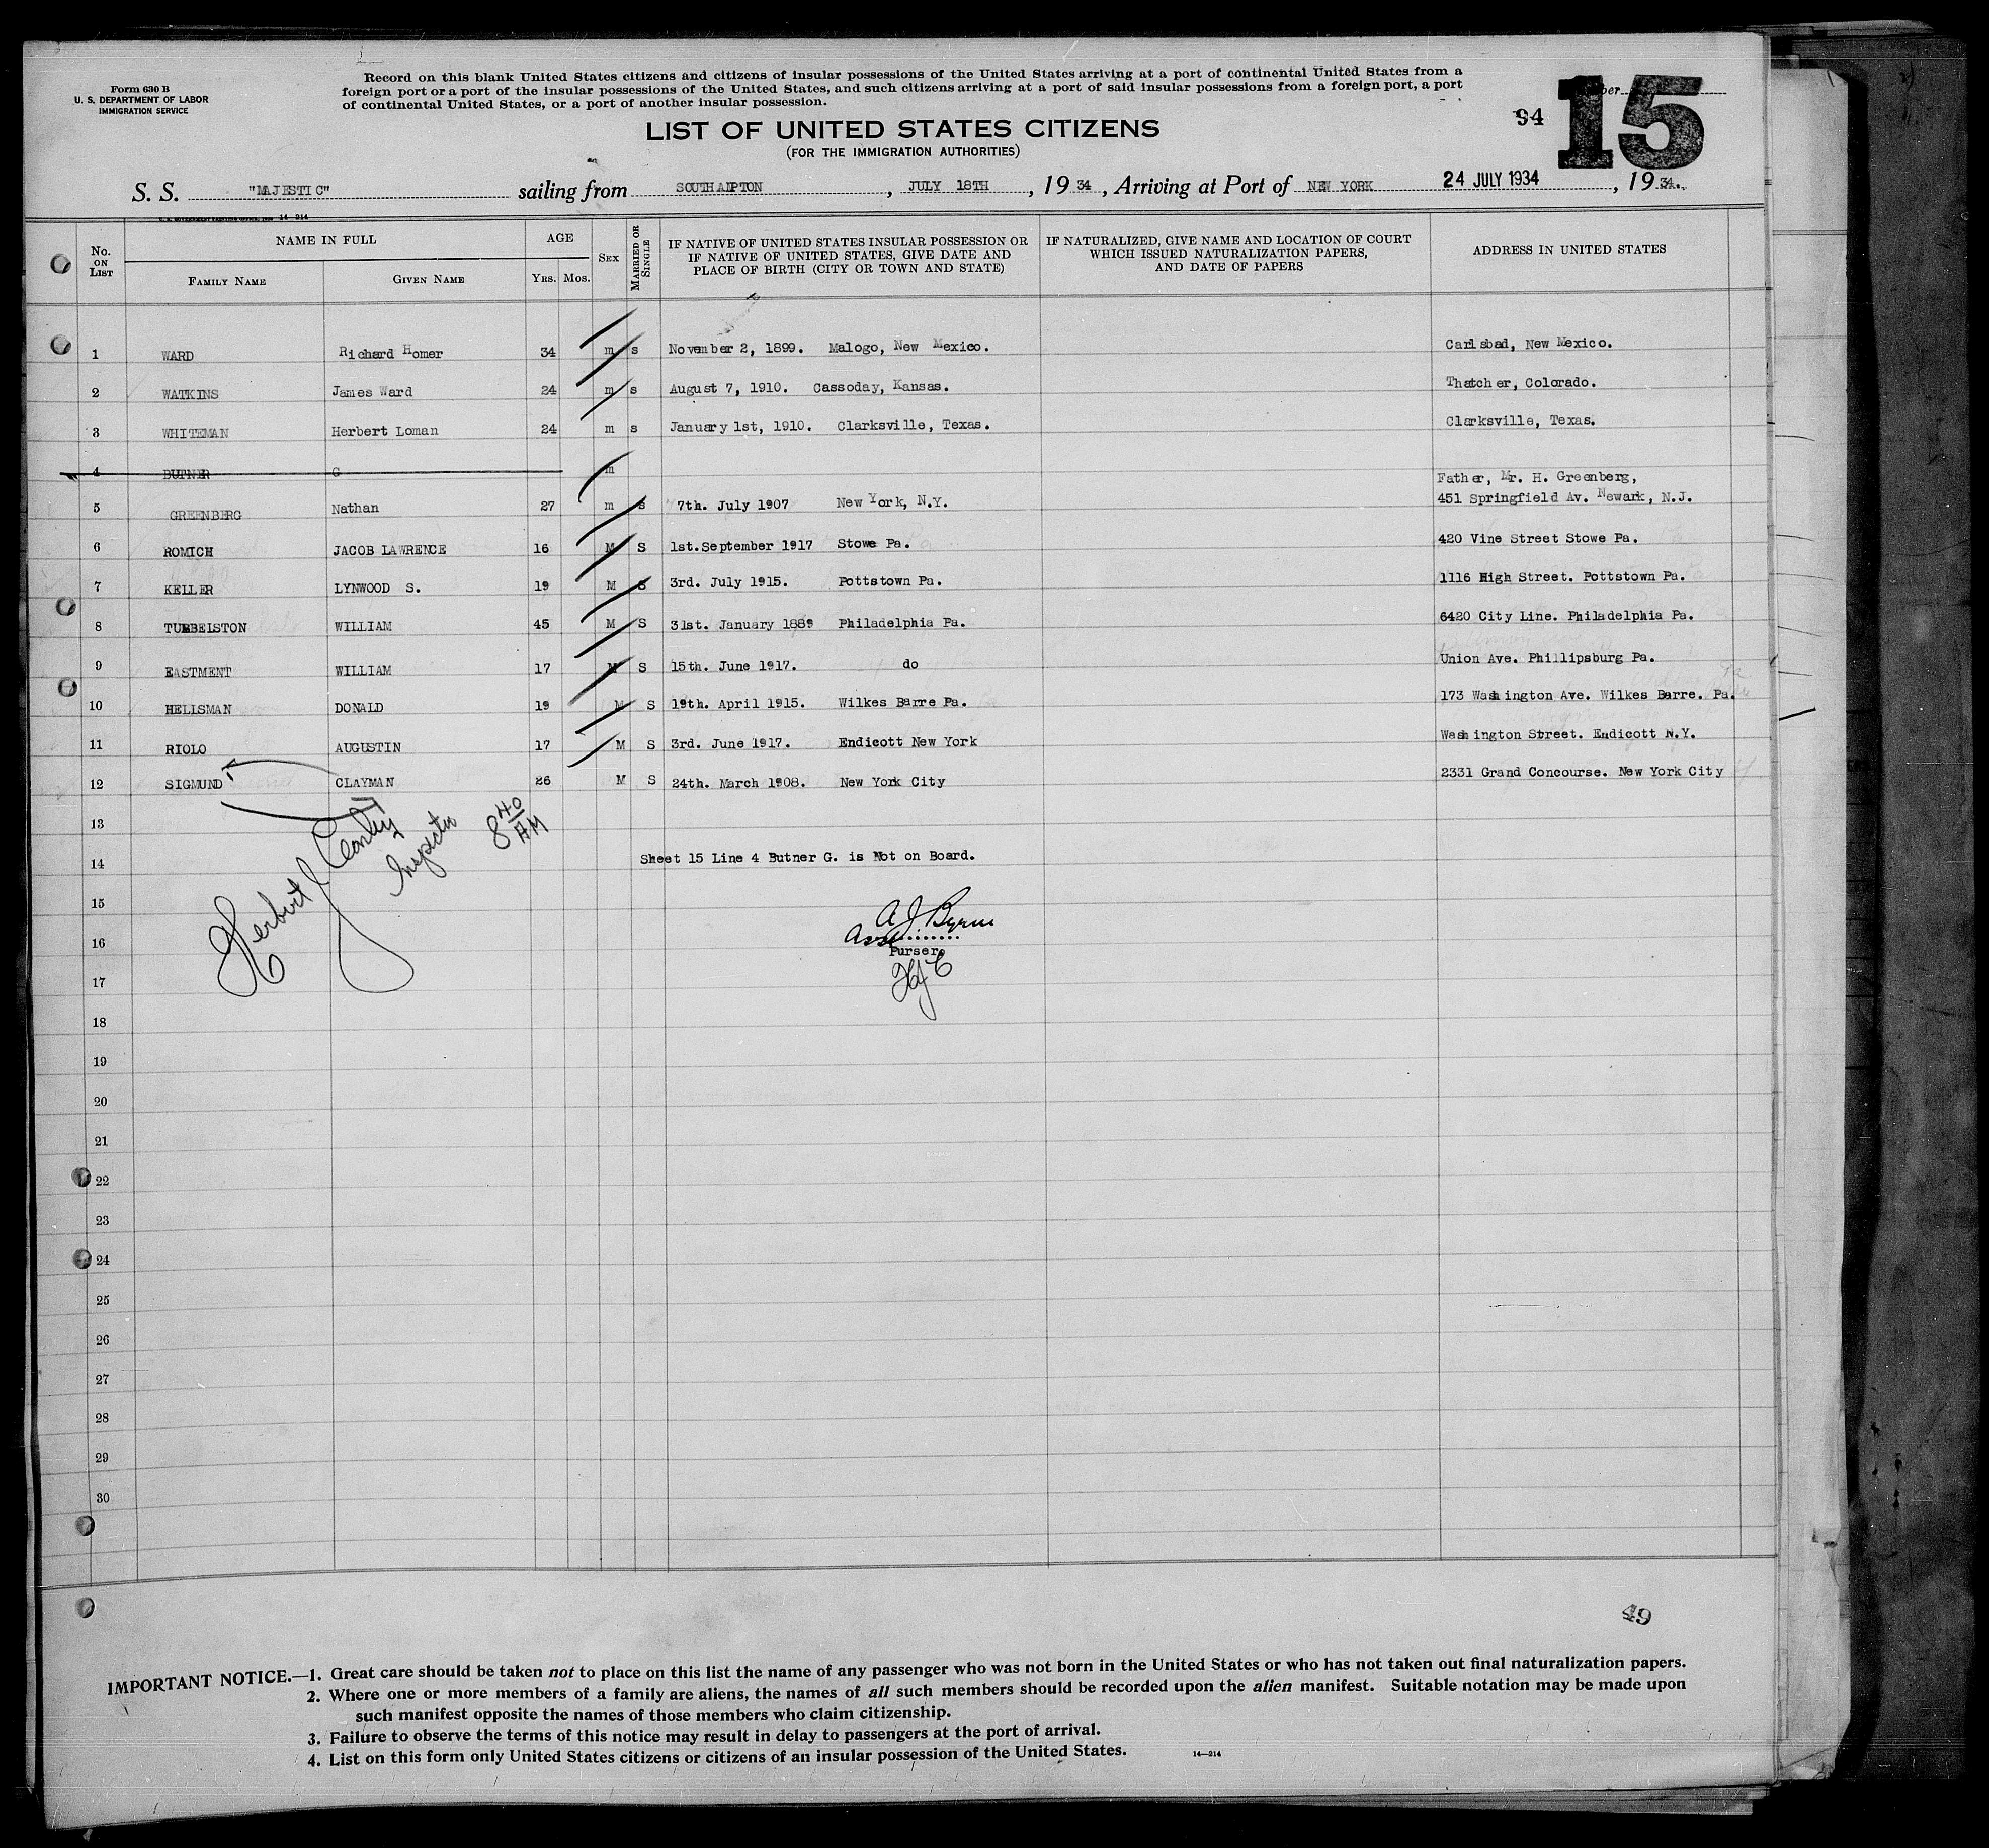 Form 630 B
U. S. DEPARTMENT OF LABOR
IMMIGRATION SERVICE
Record on this blank United States citizens and citizens of insular possessions of the United States arriving at a port of continental United States from a
foreign port or a port of the insular possessions of the United States, and such citizens arriving at a port of said insular possessions from a foreign port, a port
of continental United States, or a port of another insular possession.
94 15
LIST OF UNITED STATES CITIZENS
(FOR THE IMMIGRATION AUTHORITIES)
S. S. "MAJESTIC" sailing from SOUTHAMPTON, JULY 18TH, 1934, Arriving at Port of NEW YORK 24 JULY 1934, 1934.
14-214
No. ON LIST NAME IN FULL AGE SEX MARRIED OR SINGLE IF NATIVE OF UNITED STATES INSULAR POSSESSION OR IF NATIVE OF UNITED STATES, GIVE DATE AND PLACE OF BIRTH (CITY OR TOWN AND STATE) IF NATURALIZED, GIVE NAME AND LOCATION OF COURT WHICH ISSUED NATURALIZATION PAPERS, AND DATE OF PAPERS ADDRESS IN UNITED STATES
FAMILY NAME GIVEN NAME YRS. MOS.
1 WARD Richard Homer 34 m s November 2, 1899. Malogo, New Mexico. Carlsbad, New Mexico.
2 WATKINS James Ward 24 m s August 7, 1910. Cassoday, Kansas. Thatcher, Colorado.
3 WHITEMAN Herbert Loman 24 m s January 1st, 1910. Clarksville, Texas. Clarksville, Texas.
4 BUTNER G m
Father, Mr. H. Greenberg,
5 GREENBERG Nathan 27 m s 7th. July 1907 New York, N.Y. 451 Springfield Av. Newark, N.J.
6 ROMICH JACOB LAWRENCE 16 M S 1st.September 1917 Stowe Pa. 420 Vine Street Stowe Pa.
7 KELLER LYNWOOD S. 19 M S 3rd. July 1915. Pottstown Pa. 1116 High Street. Pottstown Pa.
8 TUMBELSTON WILLIAM 45 M S 31st. January 1889 Philadelphia Pa. 6420 City Line. Philadelphia Pa.
9 EASTMENT WILLIAM 17 M S 15th. June 1917. do Union Ave. Phillipsburg Pa.
10 HELLSMAN DONALD 19 M S 19th. April 1915. Wilkes Barre Pa. 173 Washington Ave. Wilkes Barre. Pa.
11 RIOLO AUGUSTIN 17 M S 3rd. June 1917. Endicott New York Washington Street. Endicott N.Y.
12 SIGMUND CLAYMAN 26 M S 24th. March 1908. New York City 2331 Grand Concourse. New York City
13
14 Sheet 15 Line 4 Butner G. is Not on Board.
Herbert J Inspector 8 40 AM
15
A J Byrne
16 Asst
Purser.
HJC
17
18
19
20
21
22
23
24
25
26
27
28
29
30
49
IMPORTANT NOTICE.—1. Great care should be taken not to place on this list the name of any passenger who was not born in the United States or who has not taken out final naturalization papers.
2. Where one or more members of a family are aliens, the names of all such members should be recorded upon the alien manifest. Suitable notation may be made upon
such manifest opposite the names of those members who claim citizenship.
3. Failure to observe the terms of this notice may result in delay to passengers at the port of arrival.
4. List on this form only United States citizens or citizens of an insular possession of the United States.
14—214